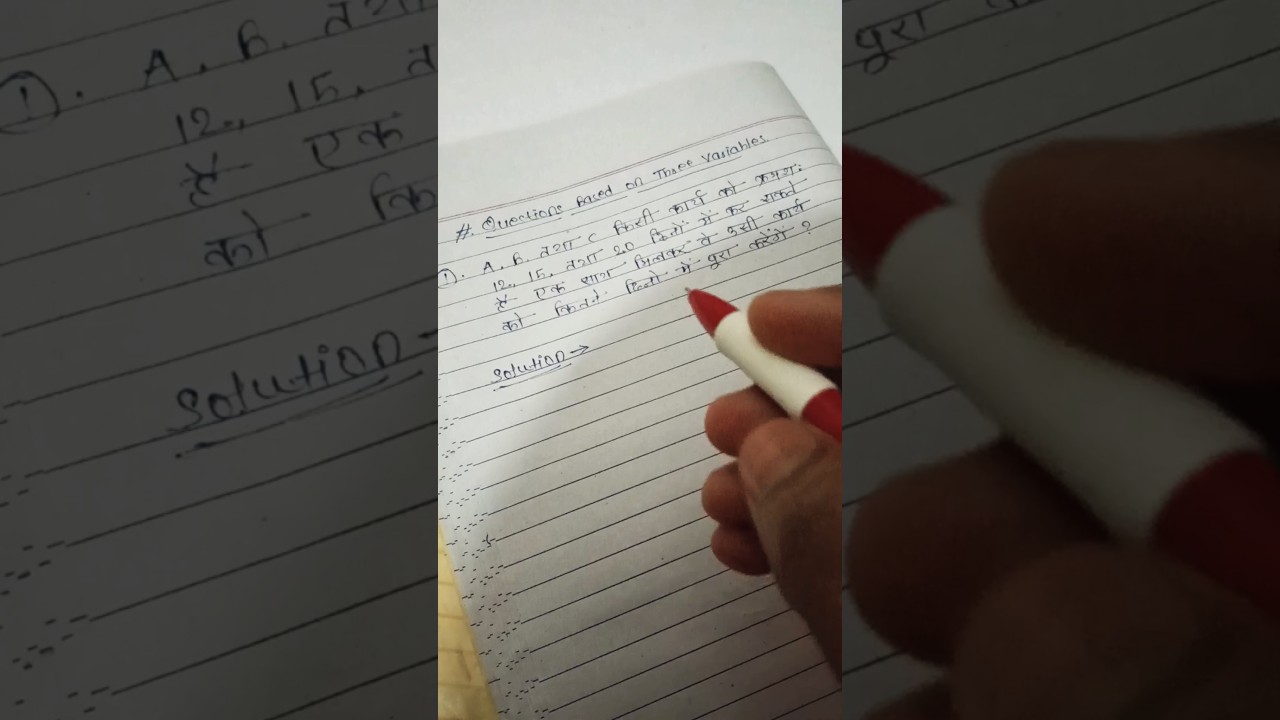 #. Questions Based on Three Variables
①. A, B, तथा C किसी कार्य को क्रमश:
12, 15, तथा 20 दिनों में कर सकते
हैं एक साथ मिलकर वे उसी कार्य
को कितने दिनों में पूरा करेंगे ?
Solution →